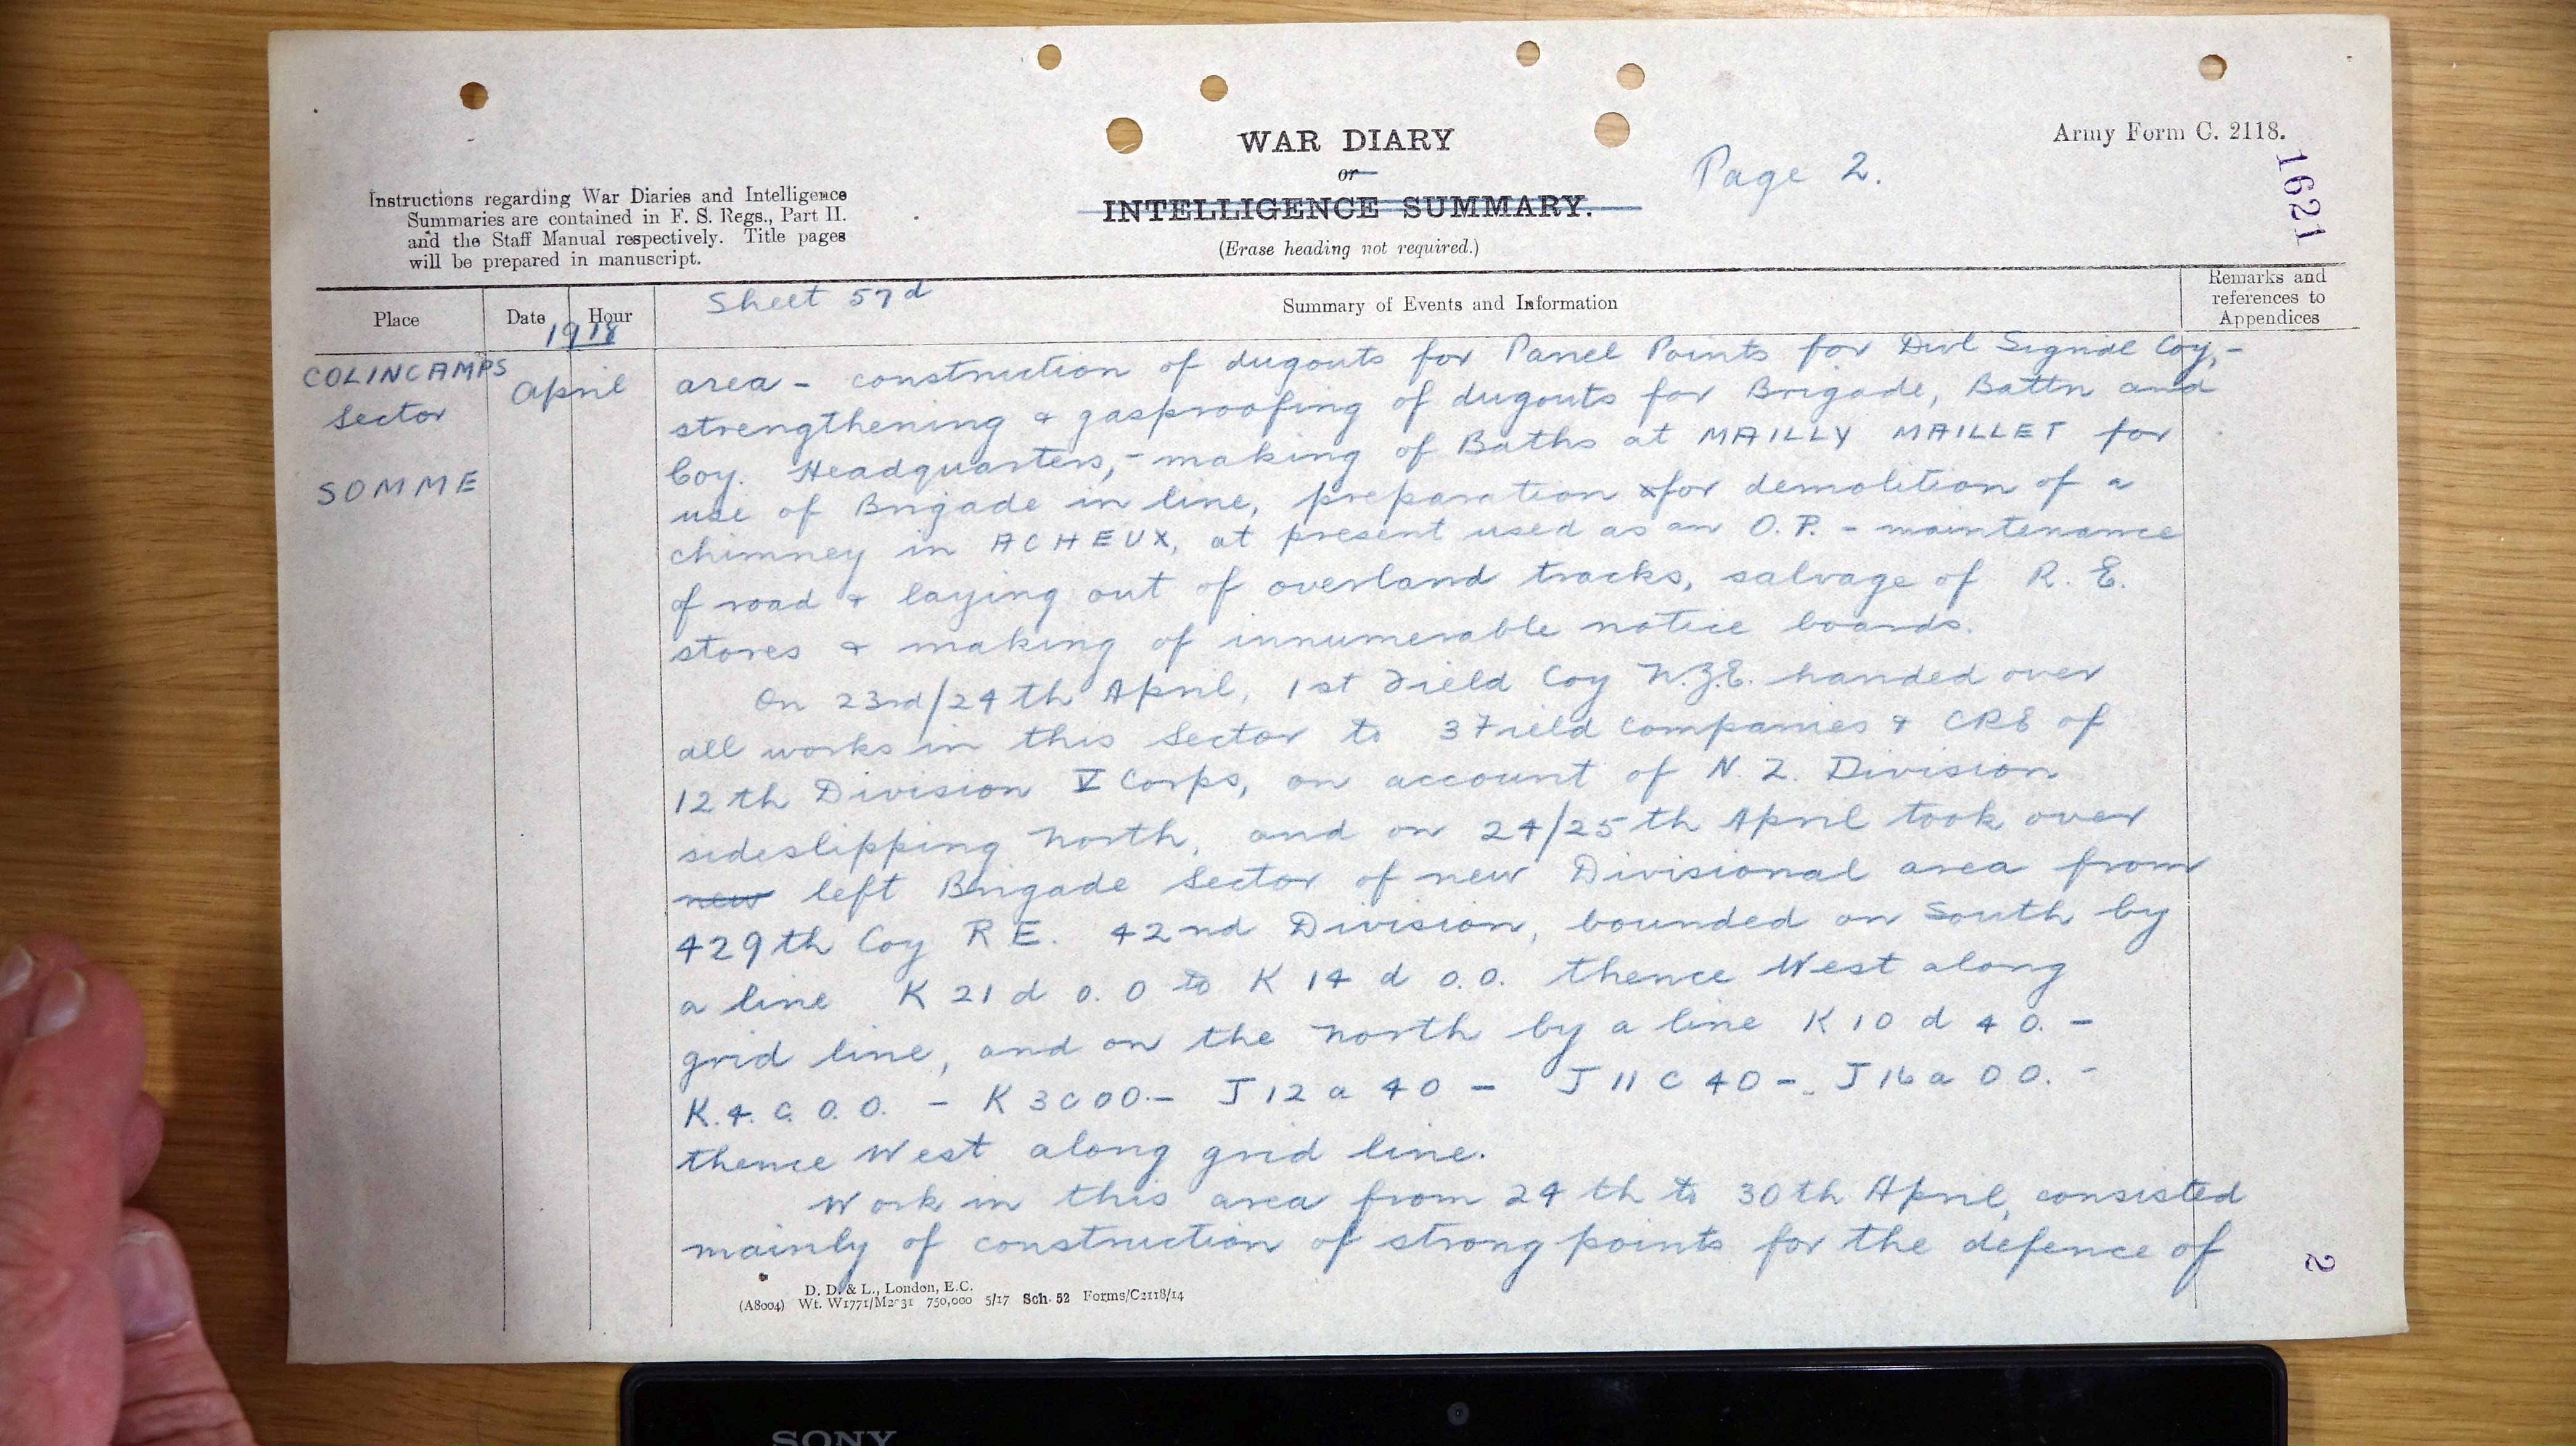 WAR DIARY
or
INTELLIGENCE SUMMARY.
(Erase heading not required.)
Page 2.
Army Form C. 2118.
1621
Instructions regarding War Diaries and Intelligence
Summaries are contained in F. S. Regs., Part II.
and the Staff Manual respectively. Title pages
will be prepared in manuscript.
Place
Date
Hour
1918
Sheet 57d
Summary of Events and Information
Remarks and
references to
Appendices
COLINCAMPS
Sector
SOMME
April
area - construction of dugouts for Panel Points for Divl Signal Coy,-
strengthening & gasproofing of dugouts for Brigade, Battn and
Coy. Headquarters,- making of Baths at MAILLY MAILLET for
use of Brigade in line, preparation for demolition of a
chimney in ACHEUX, at present used as an O.P. - maintenance
of road & laying out of overland tracks, salvage of R.E.
stores & making of innumerable notice boards.
On 23rd/24th April, 1st Field Coy N.Z.E. handed over
all works in this Sector to 3 Field Companies & CRE of
12th Division V Corps, on account of N.Z. Division
sideslipping North, and on 24/25th April took over
new left Brigade Sector of new Divisional area from
429th Coy R E. 42nd Division, bounded on South by
a line K 21 d 0.0 to K 14 d 0.0. thence West along
grid line, and on the North by a line K 10 d 4 0. -
K.4.C.0.0. - K 3 C 0 0.- J 12 a 4 0 - J 11 C 4 0 - J 16 a 0 0. -
thence West along grid line.
Work in this area from 24th to 30th April, consisted
mainly of construction of strong points for the defence of
D. D. & L., London, E.C.
(A8004) Wt. W1771/M2 31 750,000 5/17 Sch. 52 Forms/C2118/14
2
SONY